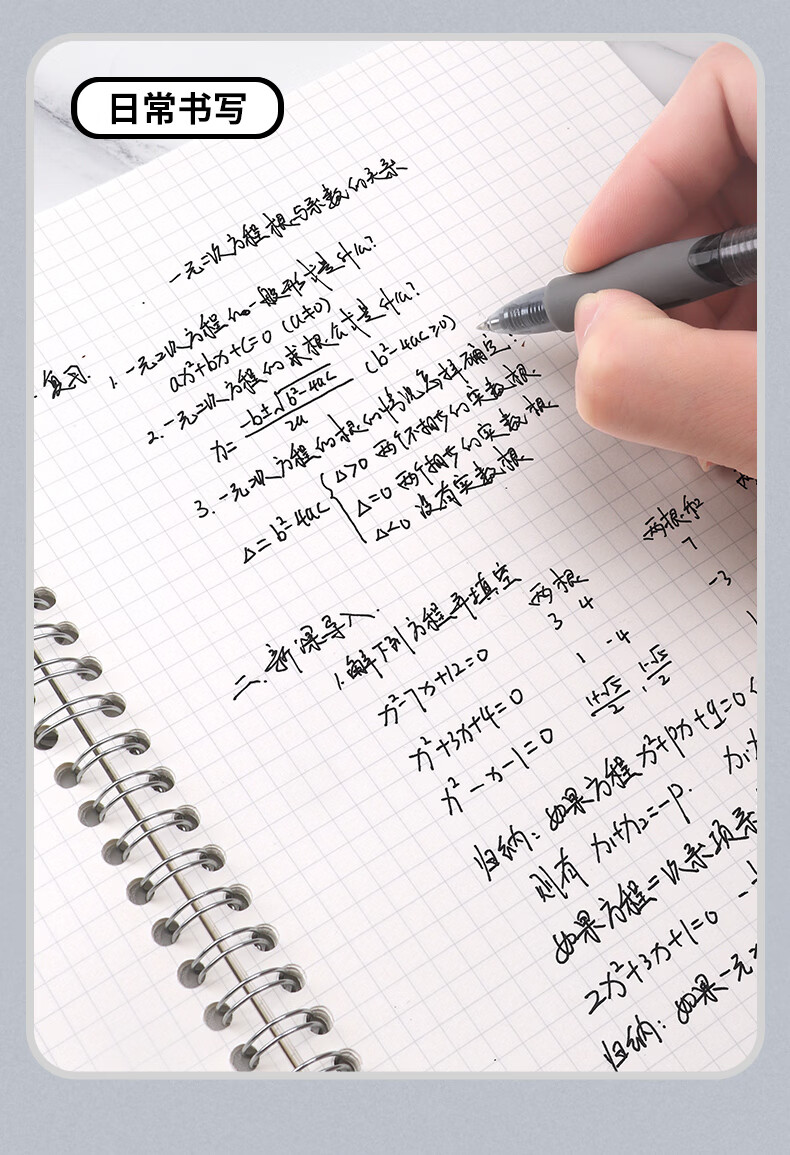 日常书写
一元二次方程根与系数的关系
一.复习:
1.一元二次方程的一般形式是什么?
ax²+bx+c=0 (a≠0)
2.一元二次方程的求根公式是什么?
x=(-b±√(b²-4ac))/2a (b²-4ac≥0)
3.一元二次方程的根的情况怎样确定?
Δ=b²-4ac { Δ>0 两个不相等的实数根
Δ=0 两个相等的实数根
Δ<0 没有实数根
二.新课导入.
1.解下列方程并填空
两根 两根和
x²-7x+12=0 3 4 7
x²+3x+4=0 1 -4 -3
x²-x-1=0 (1+√5)/2, (1-√5)/2 1
归纳: 如果方程x²+px+q=0
则有 x₁+x₂=-p.
如果方程二次系项系
2x²+3x+1=0
归纳: 如果一元二